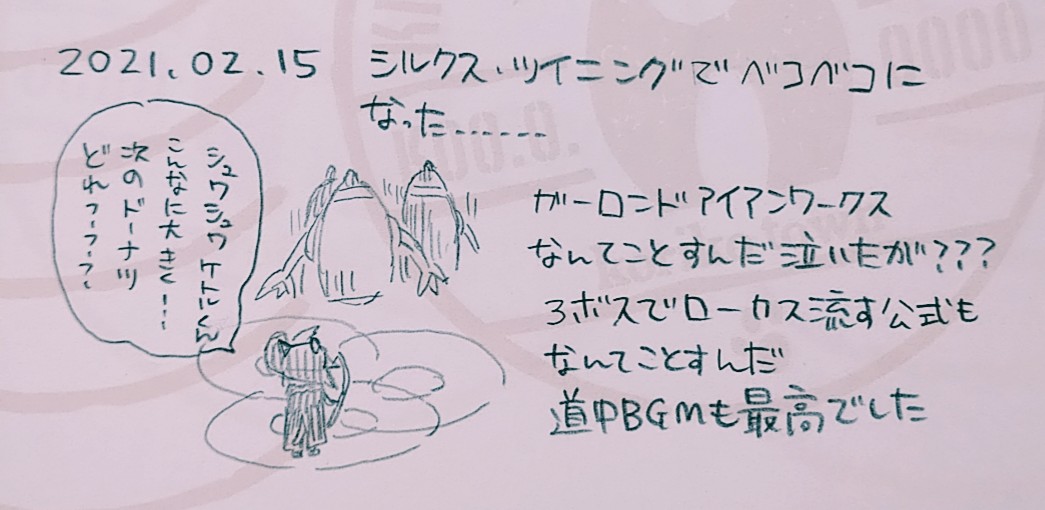 2021.02.15 シルクス・ツイニングでベコベコに
なった......
シュワシュワケトルくん
こんなに大きく...
次のドーナツ
どれっっっ?
ガーロンドアイアンワークス
なんてことすんだ泣いたが???
3ボスでローカス流す公式も
なんてことすんだ
道中BGMも最高でした